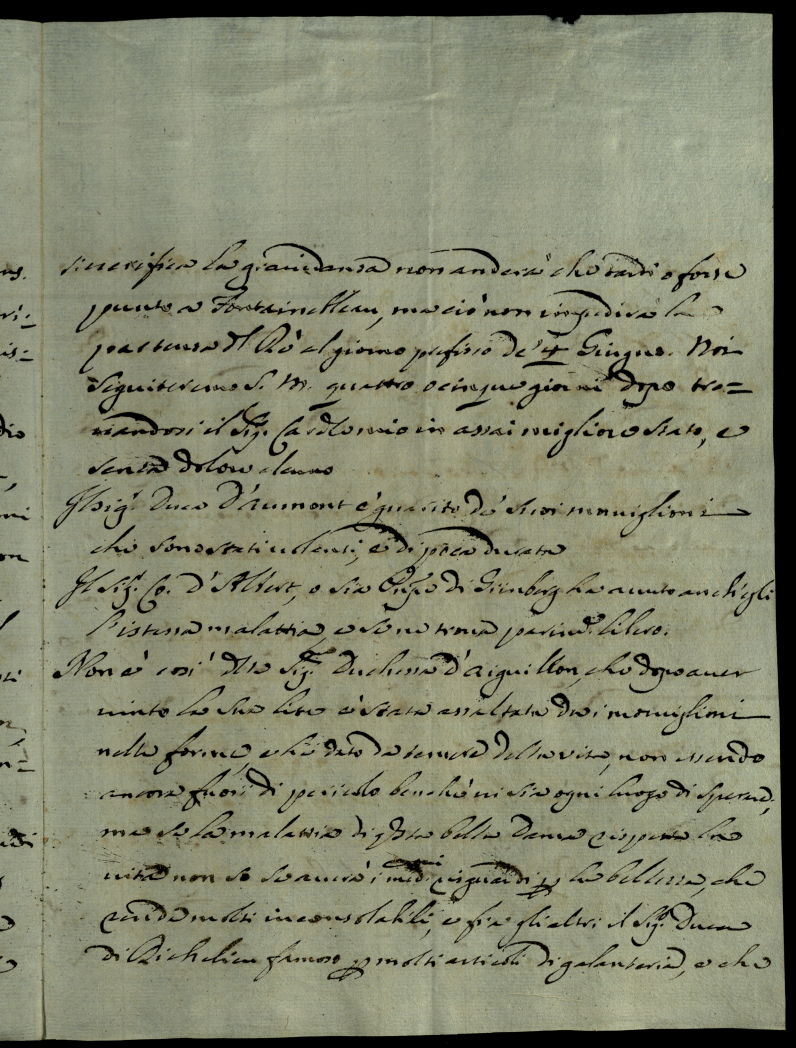 si verifica la gravidanza non anderà che tardi o forse
punto a Fontainelleau, ma ciò non impedirà la
partenza del Rè al giorno prefisso de' 4 Giugno. Noi
seguiteremo S. M. quattro o cinque giorni dopo tro=
vandosi il Sig.r Card.le mio in assai migliore stato, e
senza dolore alcuno
Il Sig.r Duca D'aumont è guarito de' suoi morviglioni
che sono stati violenti, e di poca durata
Il Sig.r Co. d'Albert, o sia di Grimberg ha avuto anch'egli
l'istessa malattia, e se ne trova parim.te libero.
Non è così della Sig.ra Duchessa d'aiguillon, che dopo aver
vinto la sua lite è stata assaltata da i morviglioni
nelle forme, e hà dato da temere della vita, non essendo
ancora fuori di pericolo benchè vi sia ogni luogo di sperare,
ma se la malattia di q.sta bella Dama rispetta la
vita non so se averà i med.mi riguardi p la bellezza, che
rende molti inconsolabili, e fra gli altri il Sig.r Duca
di Richelieu famoso p molti articoli di galanteria, e che